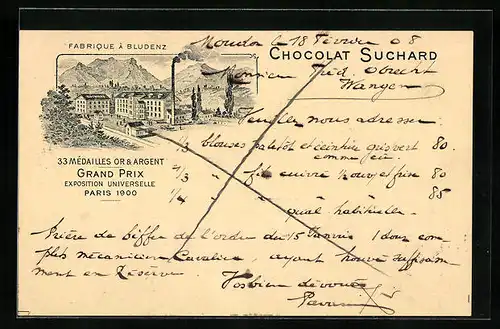 FABRIQUE À BLUDENZ
Moudon le 18 Février 08
CHOCOLAT SUCHARD
Monsieur Fréd. Obrecht
Wangen
Veuillez nous adresser
33 MÉDAILLES OR & ARGENT
GRAND PRIX
EXPOSITION UNIVERSELLE
PARIS 1900
1/3 blouses paletôt et ceinture gris vert 80.
comme
2/3 " fil cuivre et frise 80
1/4 " " qual. habituelle 85
Prière de biffer de l'ordre du 15 Janvier 1 douz com
plets mécanicien Cavalier, ayant trouvé suffisam
ment en Réserve.
Vos bien dévoués